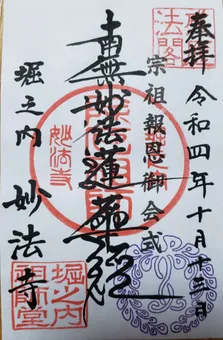 奉拝
令和四年十月十三日
宗祖報恩御会式
南無妙法蓮華経
妙法寺
堀之内
妙法寺
堀之内
祖師堂